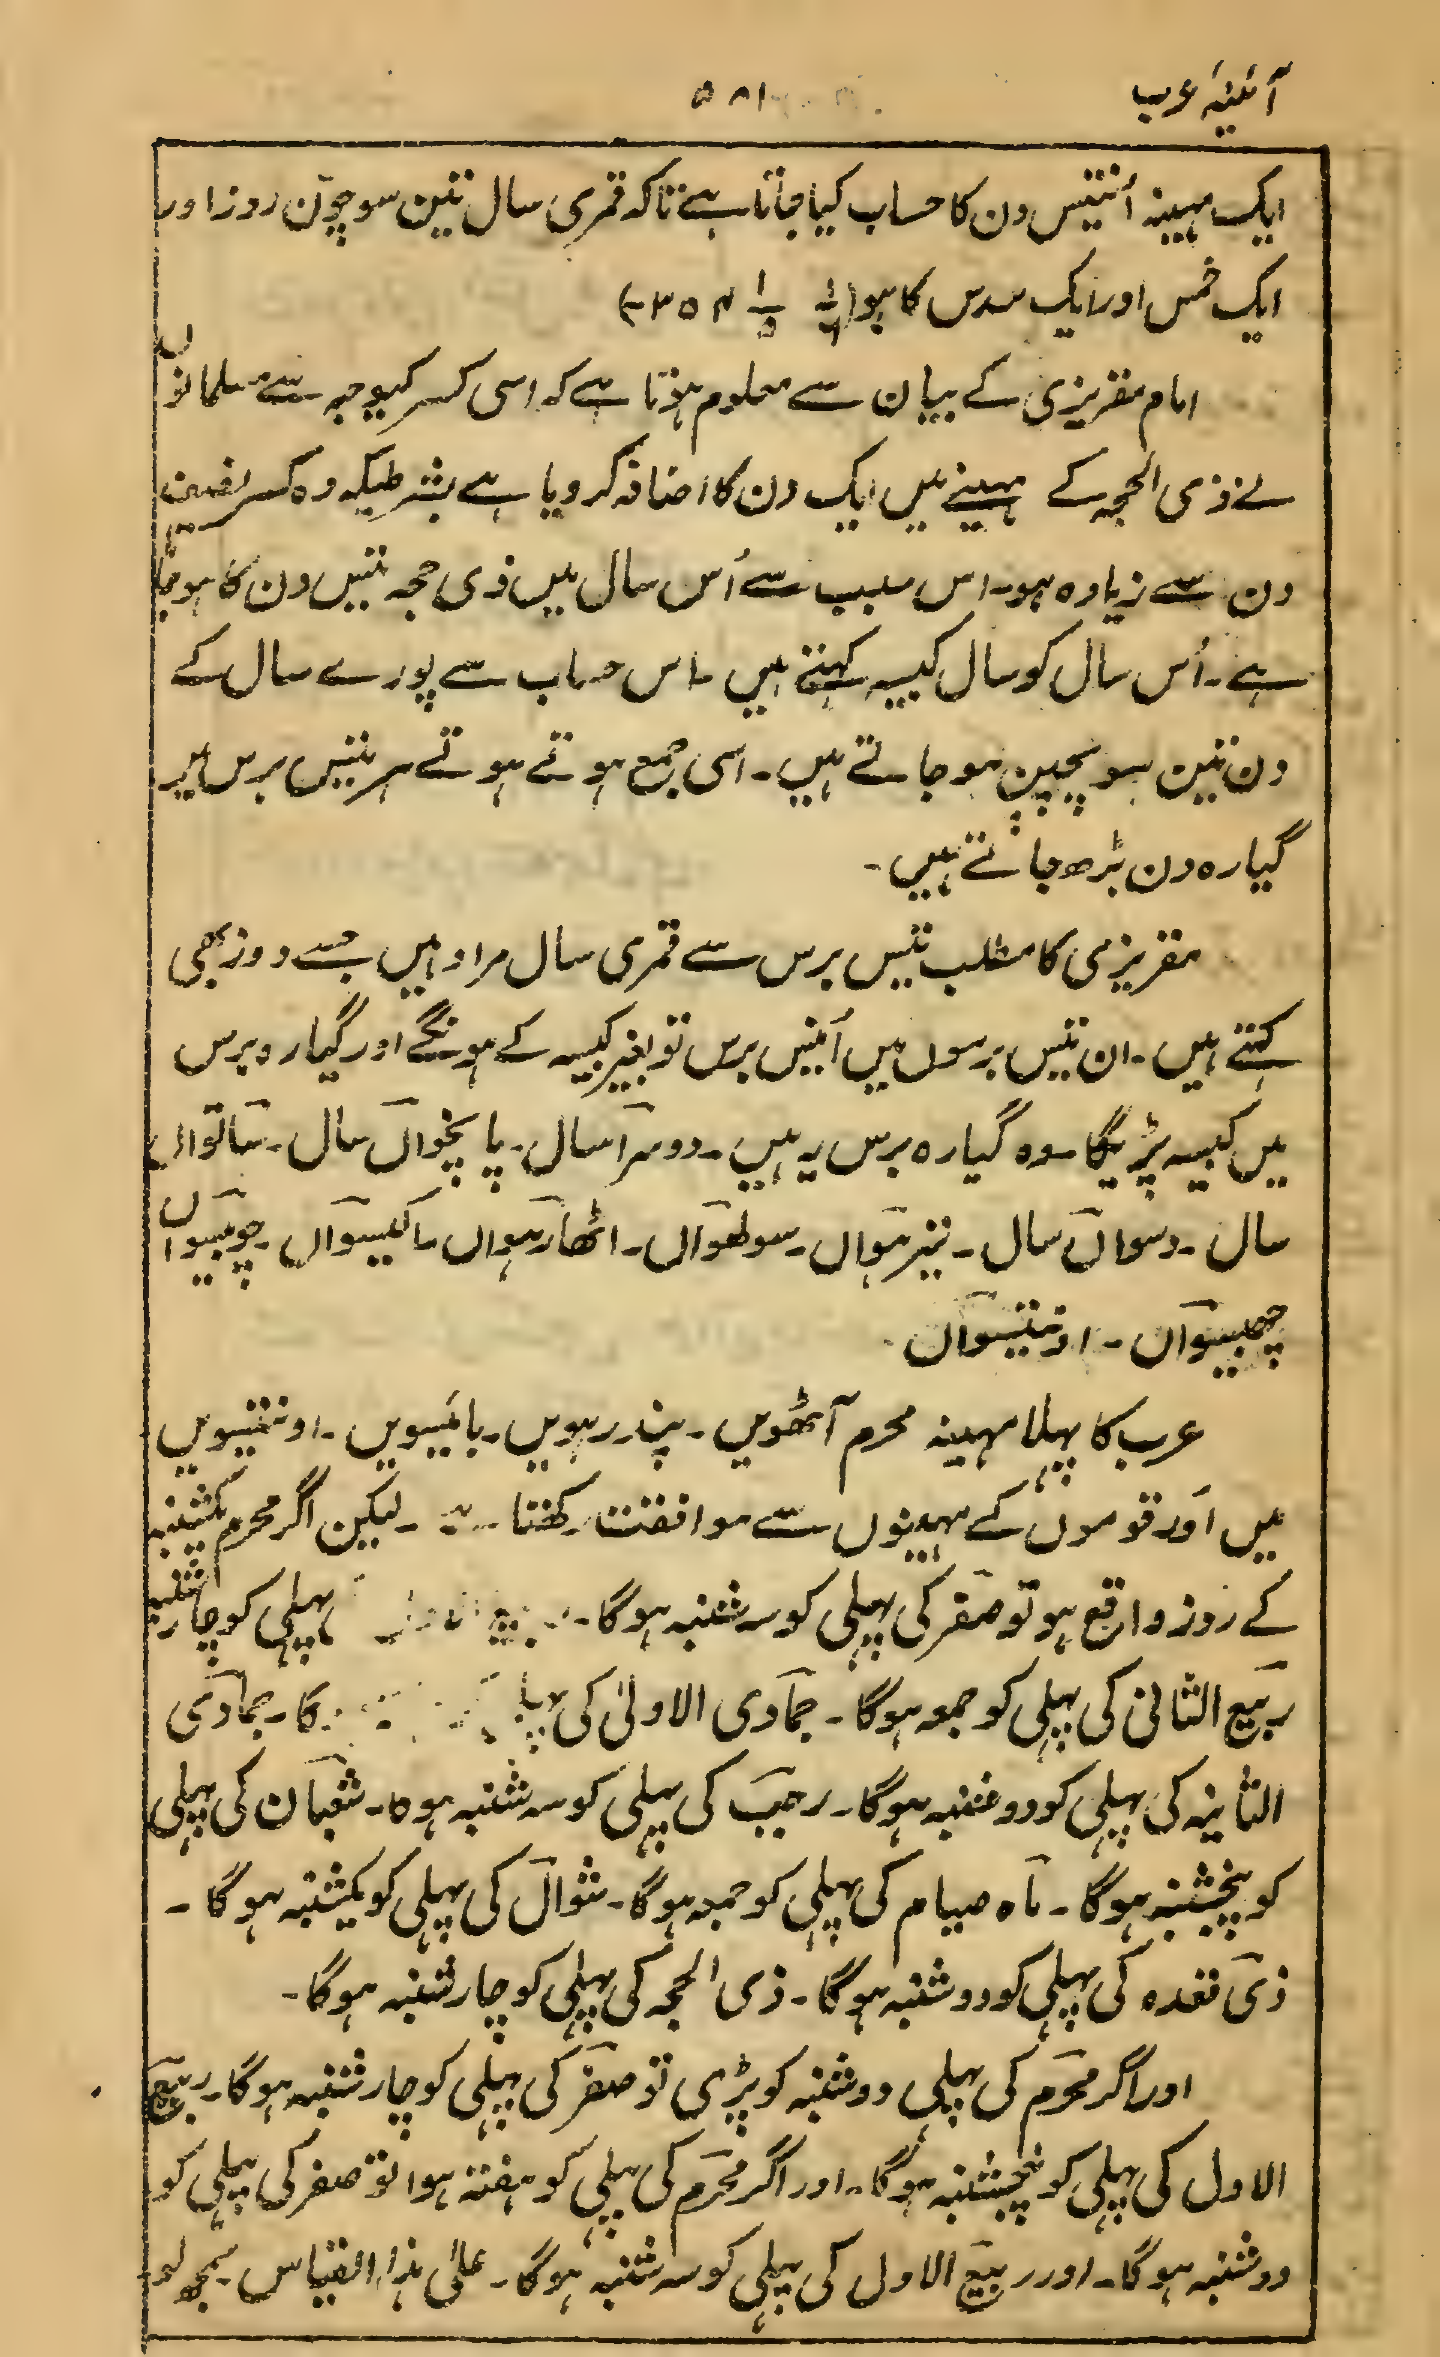 آئینۂ عرب ۵۸۱
ایک مہینہ اُنتیس دن کا حساب کیا جاتا ہے تاکہ قمری سال تین سو چوّن روز اور
ایک خمس اور ایک سدس کا ہو (۱/۶ ۱/۵ ۳۵۴)
امام مقریزی کے بیان سے معلوم ہوتا ہے کہ اسی کسر کیوجہ سے مسلمانوں
نے ذی الحجہ کے مہینے میں ایک دن کا اضافہ کر دیا ہے بشرطیکہ وہ کسر نصف
دن سے زیادہ ہو۔ اس سبب سے اُس سال میں ذی حجہ تیس دن کا ہو جاتا
ہے۔ اُس سال کو سال کبیسہ کہتے ہیں۔ اس حساب سے پورے سال کے
دن تین سو پچپن ہو جاتے ہیں۔ اسی جمع ہوتے ہوتے ہر تیس برس میں
گیارہ دن بڑھ جاتے ہیں۔
مقریزی کا مطلب تیس برس سے قمری سال مراد ہیں جسے دور بھی
کہتے ہیں۔ ان تیس برسوں میں اُنیس برس تو بغیر کبیسہ کے ہونگے اور گیارہ برس
میں کبیسہ پڑیگا۔ وہ گیارہ برس یہ ہیں۔ دوسرا سال۔ پانچواں سال۔ ساتواں
سال۔ دسواں سال۔ تیرہواں۔ سولھواں۔ اٹھارہواں۔ اکیسواں۔ چوبیسواں
چھبیسواں۔ اونتیسواں
عرب کا پہلا مہینہ محرم آٹھویں۔ پندرہویں۔ بائیسویں۔ اونتیسویں
میں اَور قوموں کے مہینوں سے موافقت رکھتا ہے۔ لیکن اگر محرم یکشنبہ
کے روز واقع ہو تو صفر کی پہلی کو سہ شنبہ ہوگا۔ پہلی کو چار شنبہ
ربیع الثانی کی پہلی کو جمعہ ہوگا۔ جمادی الاولیٰ کی گا۔ جمادی
الثانیہ کی پہلی کو دوشنبہ ہوگا۔ رجب کی پہلی کو سہ شنبہ ہوگا۔ شعبان کی پہلی
کو پنجشنبہ ہوگا۔ ماہ صیام کی پہلی کو جمعہ ہوگا۔ شوال کی پہلی کو یکشنبہ ہوگا۔
ذی قعدہ کی پہلی کو دوشنبہ ہوگا۔ ذی الحجہ کی پہلی کو چار شنبہ ہوگا۔
اور اگر محرم کی پہلی دوشنبہ کو پڑی تو صفر کی پہلی کو چار شنبہ ہوگا۔ ربیع
الاول کی پہلی کو پنجشنبہ ہوگا۔ اور اگر محرم کی پہلی کو ہفتہ ہوا تو صفر کی پہلی کو
دوشنبہ ہوگا۔ اور ربیع الاول کی پہلی کو سہ شنبہ ہوگا۔ علیٰ ہذا القیاس سمجھ لو